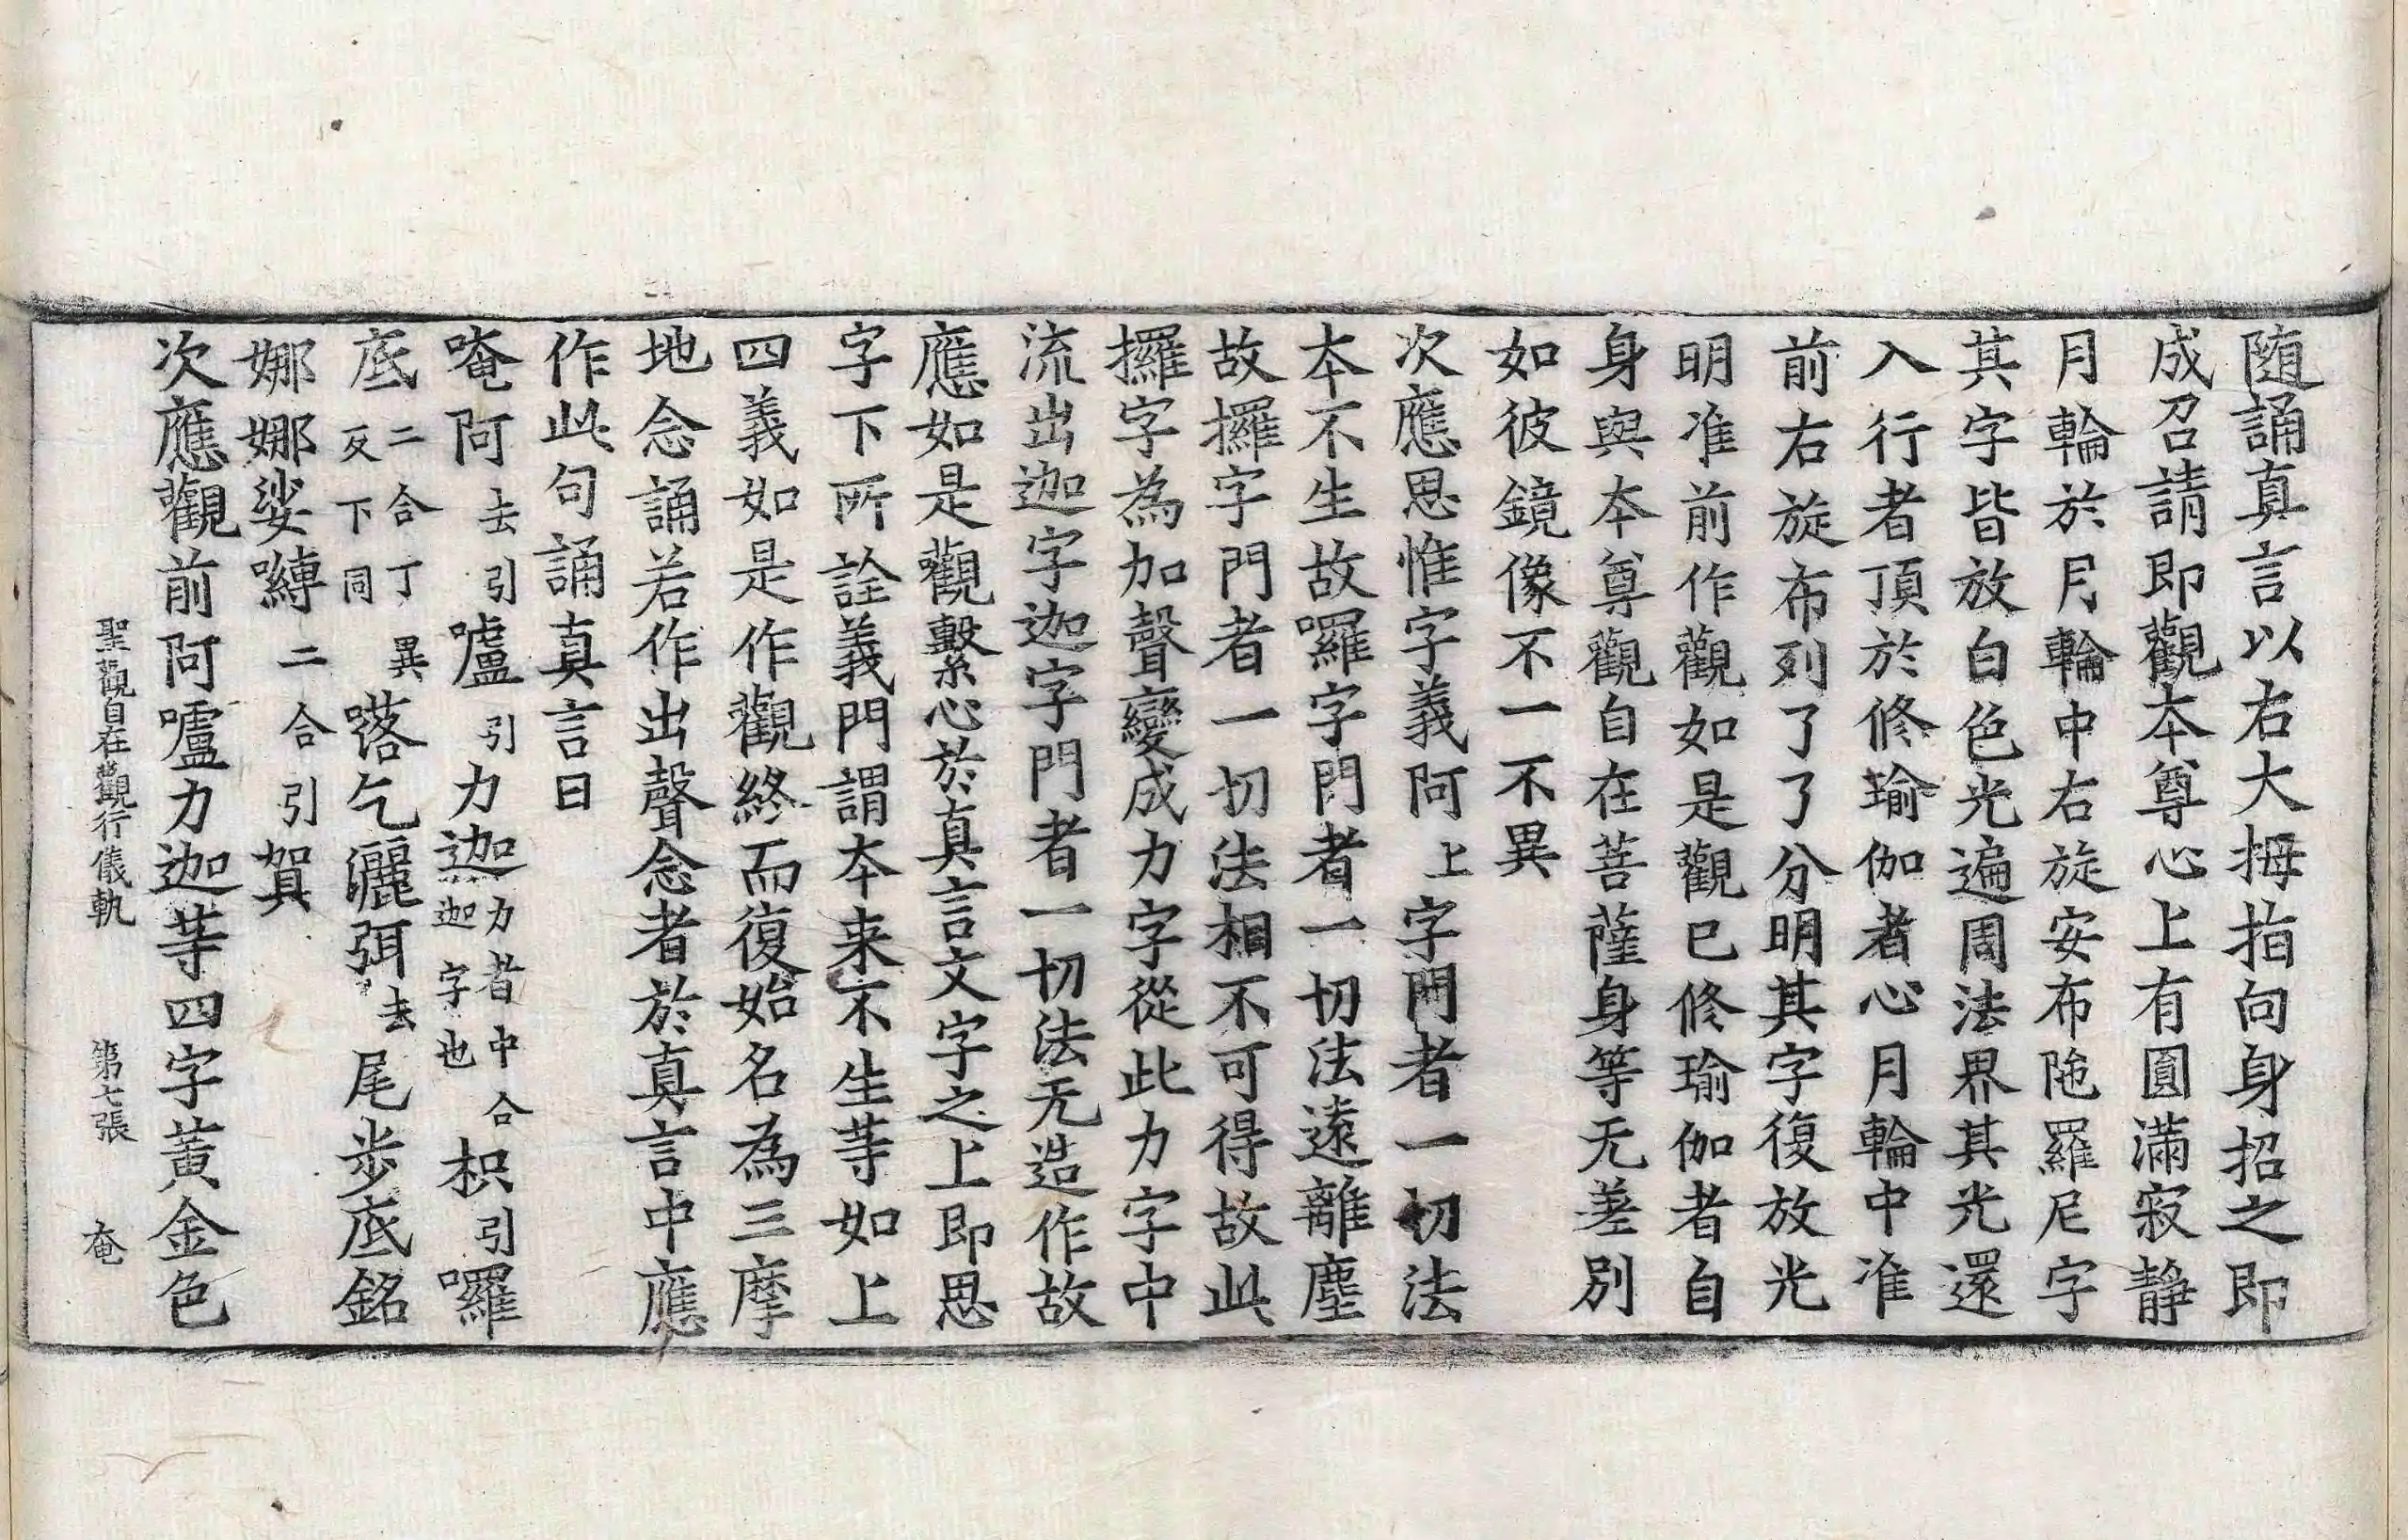 随誦真言以右大拇指向身招之即
成召請即觀本尊心上有圓滿寂靜
月輪於月輪中右旋安布陁羅尼字
其字皆放白色光遍周法界其光還
入行者頂於修瑜伽者心月輪中准
前右旋布列了了分明其字復放光
明准前作觀如是觀已修瑜伽者自
身與本尊觀自在菩薩身等无差別
如彼鏡像不一不異
次應思惟字義阿上字門者一切法
本不生故囉字門者一切法遠離塵
故攞字門者一切法相不可得故此
攞字為加聲變成力字從此力字中
流出迦字迦字門者一切法无造作故
應如是觀繫心於真言文字之上即思
字下所詮義門謂本来不生等如上
四義如是作觀終而復始名為三摩
地念誦若作出聲念者於真言中應
作此句誦真言曰
唵阿去引嚧引力迦力者中合迦字也枳引囉
底二合丁異反下同 㗉乞灑弭去尾步底銘
娜娜娑嚩二合引賀
次應觀前阿嚧力迦等四字黃金色
聖觀自在觀行儀軌 第七張 奄